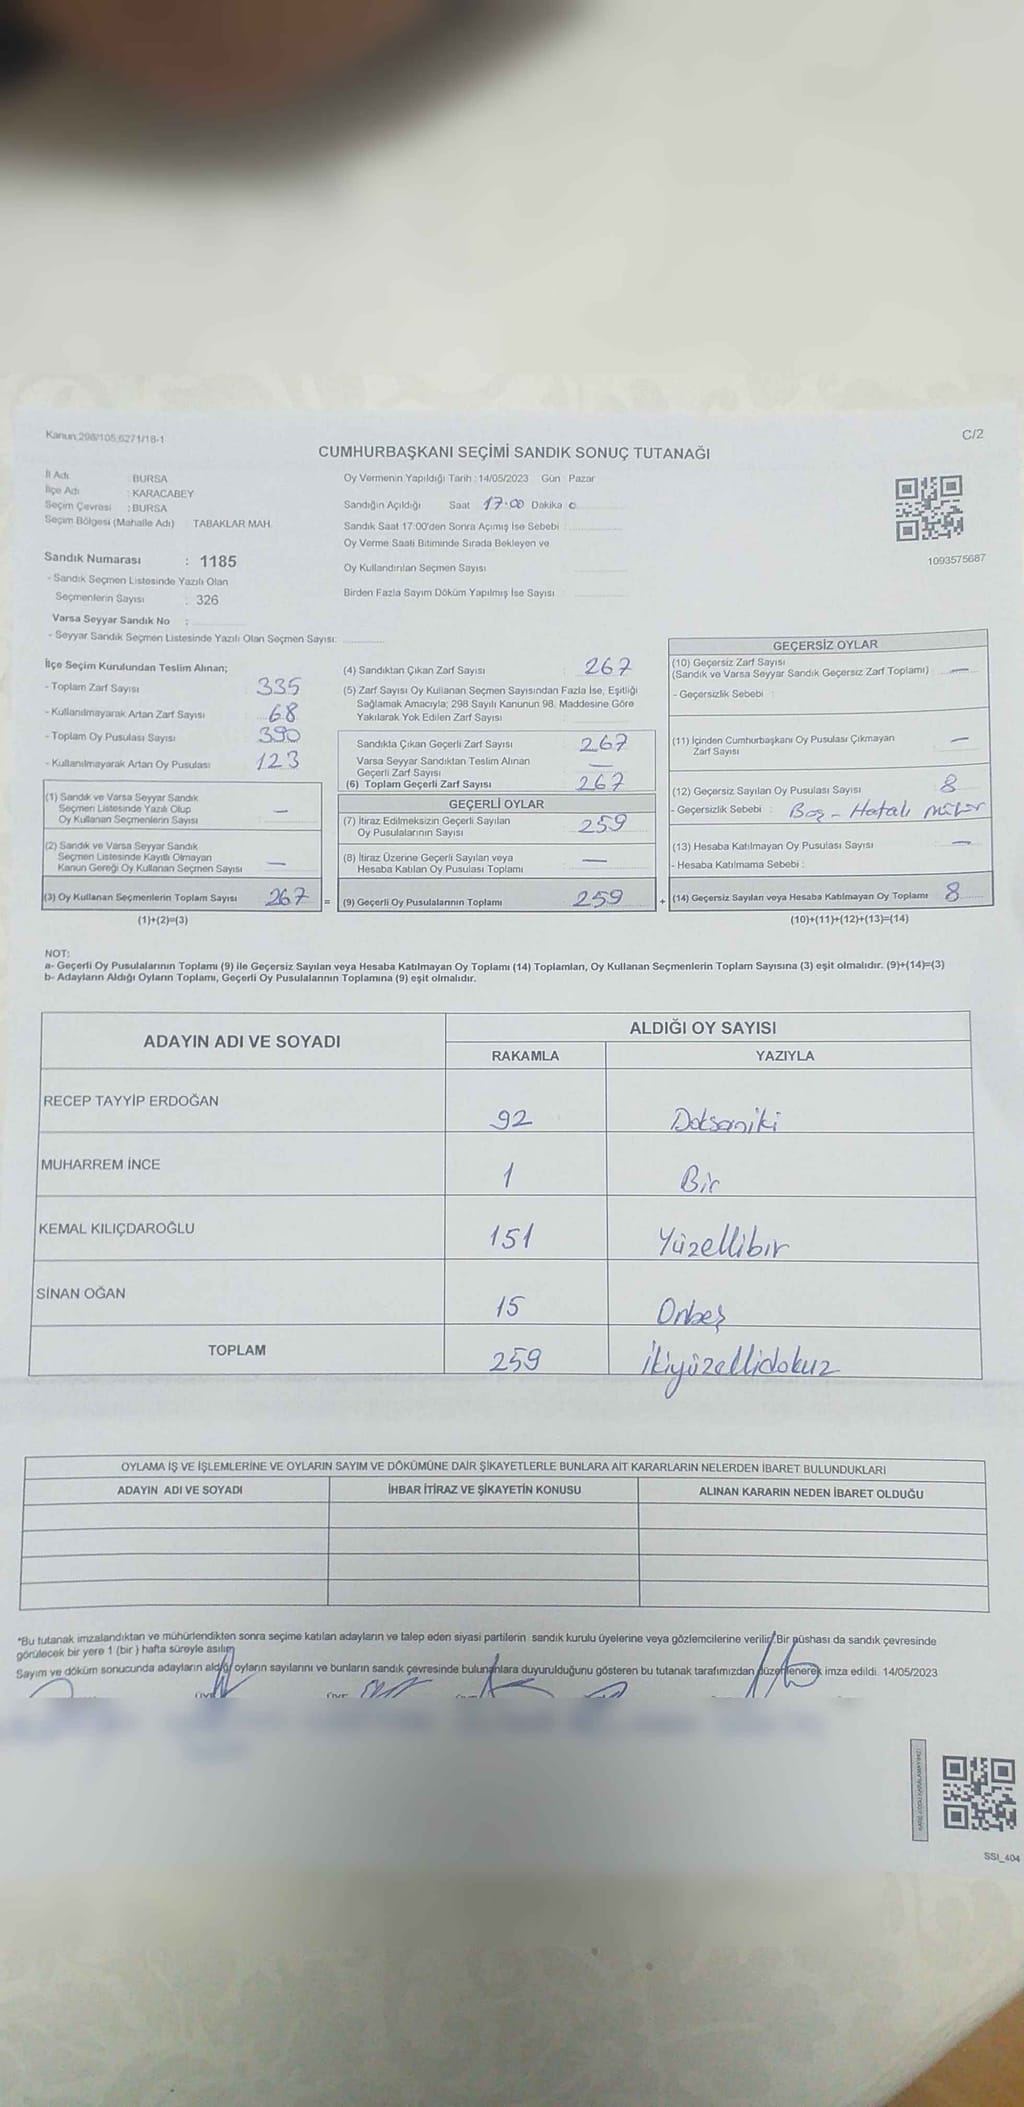 Kanun 298/105,6271/18-1
C/2
CUMHURBAŞKANI SEÇİMİ SANDIK SONUÇ TUTANAĞI
İl Adı : BURSA
İlçe Adı : KARACABEY
Seçim Çevresi : BURSA
Seçim Bölgesi (Mahalle Adı) TABAKLAR MAH.
Oy Vermenin Yapıldığı Tarih : 14/05/2023 Gün : Pazar
Sandığın Açıldığı Saat 17:00 Dakika 0
Sandık Saat 17:00'den Sonra Açımış İse Sebebi :
Oy Verme Saati Bitiminde Sırada Bekleyen ve
Oy Kullandırılan Seçmen Sayısı
Birden Fazla Sayım Döküm Yapılmış İse Sayısı
1093575687
Sandık Numarası : 1185
- Sandık Seçmen Listesinde Yazılı Olan
Seçmenlerin Sayısı : 326
Varsa Seyyar Sandık No :
- Seyyar Sandık Seçmen Listesinde Yazılı Olan Seçmen Sayısı:
İlçe Seçim Kurulundan Teslim Alınan;
- Toplam Zarf Sayısı 335
- Kullanılmayarak Artan Zarf Sayısı 68
- Toplam Oy Pusulası Sayısı 390
- Kullanılmayarak Artan Oy Pusulası 123
(1) Sandık ve Varsa Seyyar Sandık
Seçmen Listesinde Yazılı Olup
Oy Kullanan Seçmenlerin Sayısı —
(2) Sandık ve Varsa Seyyar Sandık
Seçmen Listesinde Kayıtlı Olmayan
Kanun Gereği Oy Kullanan Seçmen Sayısı —
(3) Oy Kullanan Seçmenlerin Toplam Sayısı 267
(1)+(2)=(3)
(4) Sandıktan Çıkan Zarf Sayısı : 267
(5) Zarf Sayısı Oy Kullanan Seçmen Sayısından Fazla İse, Eşitliği
Sağlamak Amacıyla; 298 Sayılı Kanunun 98. Maddesine Göre
Yakılarak Yok Edilen Zarf Sayısı
Sandıkta Çıkan Geçerli Zarf Sayısı 267
Varsa Seyyar Sandıktan Teslim Alınan
Geçerli Zarf Sayısı —
(6) Toplam Geçerli Zarf Sayısı 267
GEÇERLİ OYLAR
(7) İtiraz Edilmeksizin Geçerli Sayılan
Oy Pusulalarının Sayısı 259
(8) İtiraz Üzerine Geçerli Sayılan veya
Hesaba Katılan Oy Pusulası Toplamı —
= (9) Geçerli Oy Pusulalarının Toplamı 259
GEÇERSİZ OYLAR
(10) Geçersiz Zarf Sayısı
(Sandık ve Varsa Seyyar Sandık Geçersiz Zarf Toplamı) —
- Geçersizlik Sebebi :
(11) İçinden Cumhurbaşkanı Oy Pusulası Çıkmayan
Zarf Sayısı —
(12) Geçersiz Sayılan Oy Pusulası Sayısı 8
- Geçersizlik Sebebi : Boş - Hatalı mühür
(13) Hesaba Katılmayan Oy Pusulası Sayısı —
- Hesaba Katılmama Sebebi :
+ (14) Geçersiz Sayılan veya Hesaba Katılmayan Oy Toplamı 8
(10)+(11)+(12)+(13)=(14)
NOT:
a- Geçerli Oy Pusulalarının Toplamı (9) ile Geçersiz Sayılan veya Hesaba Katılmayan Oy Toplamı (14) Toplamları, Oy Kullanan Seçmenlerin Toplam Sayısına (3) eşit olmalıdır. (9)+(14)=(3)
b- Adayların Aldığı Oyların Toplamı, Geçerli Oy Pusulalarının Toplamına (9) eşit olmalıdır.
ADAYIN ADI VE SOYADI
ALDIĞI OY SAYISI
RAKAMLA YAZIYLA
RECEP TAYYİP ERDOĞAN 92 Doksaniki
MUHARREM İNCE 1 Bir
KEMAL KILIÇDAROĞLU 151 Yüzellibir
SİNAN OĞAN 15 Onbeş
TOPLAM 259 İkiyüzellidokuz
OYLAMA İŞ VE İŞLEMLERİNE VE OYLARIN SAYIM VE DÖKÜMÜNE DAİR ŞİKAYETLERLE BUNLARA AİT KARARLARIN NELERDEN İBARET BULUNDUKLARI
ADAYIN ADI VE SOYADI İHBAR İTİRAZ VE ŞİKAYETİN KONUSU ALINAN KARARIN NEDEN İBARET OLDUĞU
*Bu tutanak imzalandıktan ve mühürlendikten sonra seçime katılan adayların ve talep eden siyasi partilerin sandık kurulu üyelerine veya gözlemcilerine verilir. Bir nüshası da sandık çevresinde
görülecek bir yere 1 (bir) hafta süreyle asılır.
Sayım ve döküm sonucunda adayların aldığı oyların sayılarını ve bunların sandık çevresinde bulunanlara duyurulduğunu gösteren bu tutanak tarafımızdan düzenlenerek imza edildi. 14/05/2023
SSI_404